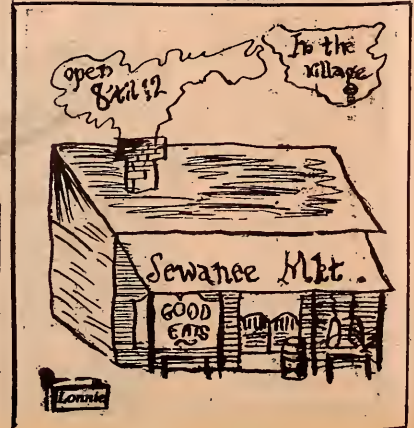 open
8 'til 12
In the
village
Sewanee Mkt.
GOOD
EATS
Lonnie